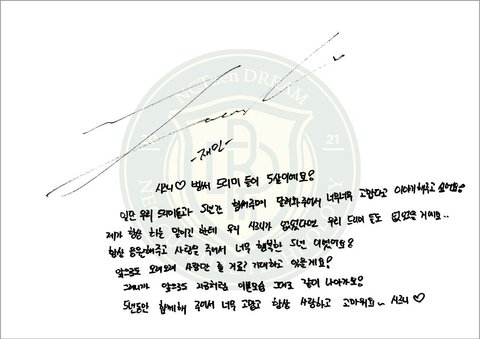 NCTzen DREAM
20 21
-재민-
시즈니♡ 벌써 드리미 들이 5살이에요?
일단 우리 드리미들과 5년간 함께해주며 달려와주어서 너무너무 고맙다고 이야기해주고 싶어요?
제가 항상 하는 말이긴 한데 우리 시즈니가 없었다면 우리 드리미 들도 없었을 거에요..
항상 응원해주고 사랑을 주어서 너무 행복한 5년 이였어요?
앞으로도 오래오래 사랑만 줄 거죠? 기대하고 있을게요?
그러니까 앞으로도 지금처럼 이쁜모습 그대로 같이 나아가요?
5년동안 함께해 주어서 너무 고맙고 항상 사랑하고 고마워요~ 시즈니 ♡